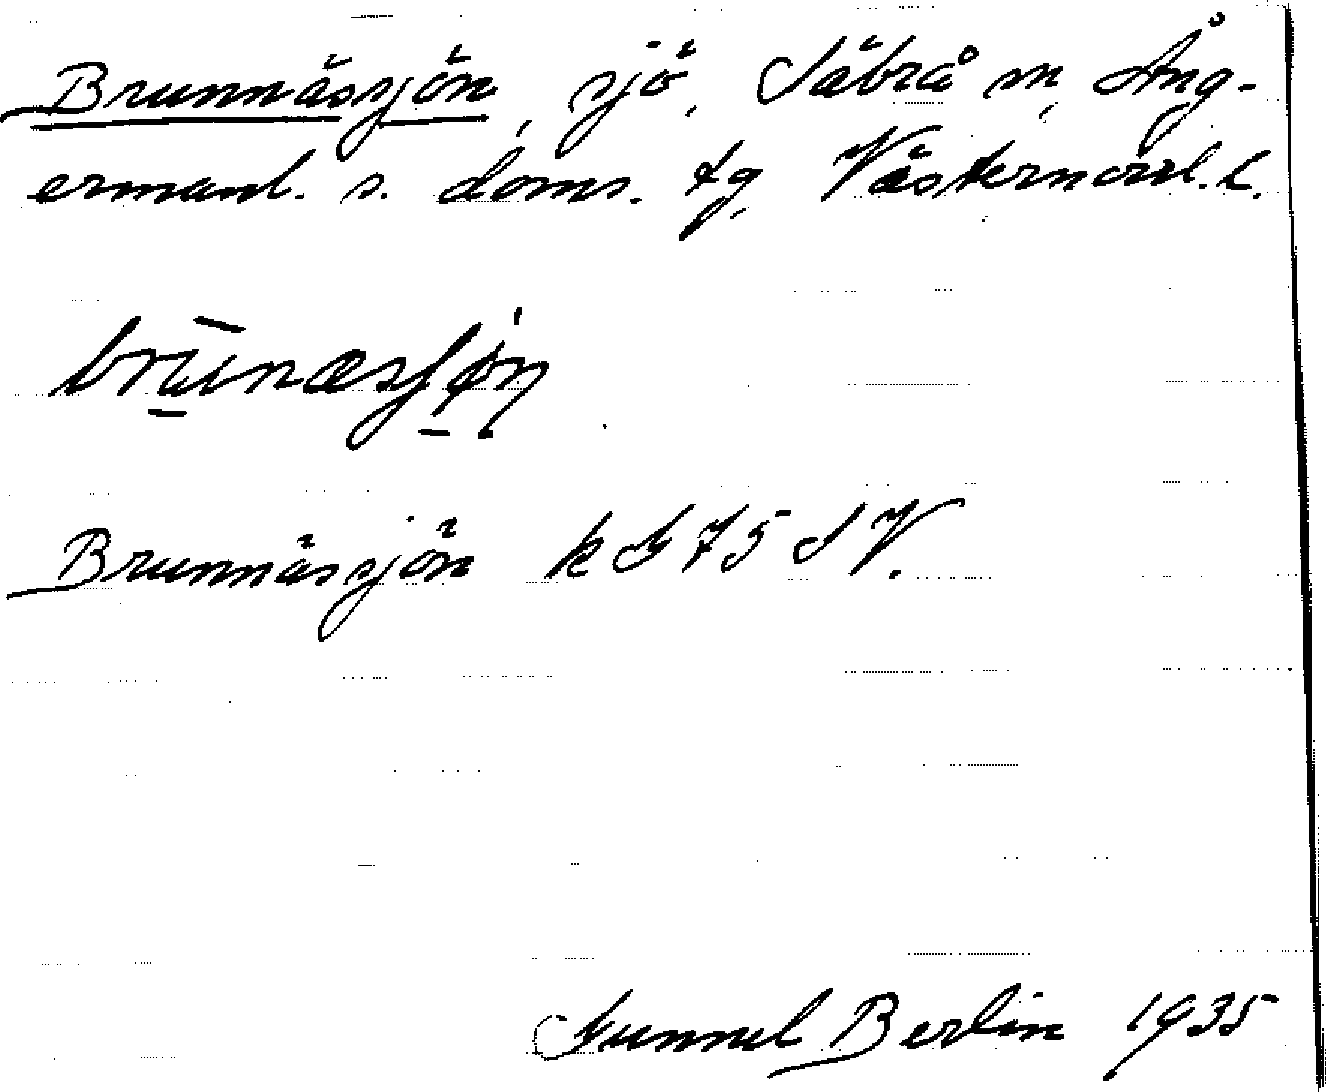 Brunnäsjön, sjö, Säbrå sn, Ång-
ermanl. s. doms. tg, Västernorrl. l.
Brunnässjön k G 75 S V.
Gunnel Berlin 1935